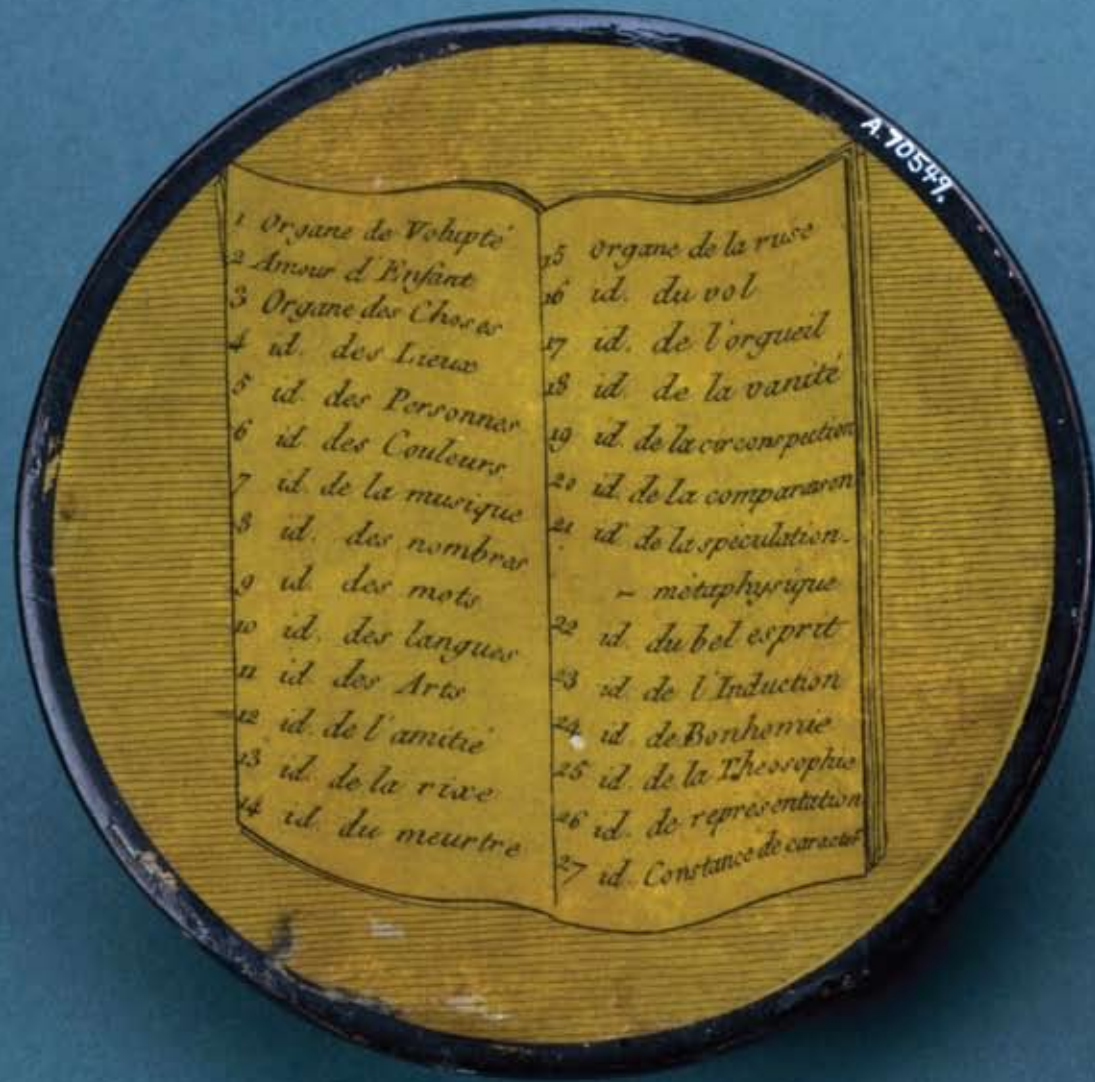 A.70549.
1 Organe de Volupté
2 Amour d'Enfant
3 Organe des Choses
4 id. des Lieux
5 id. des Personnes
6 id. des Couleurs
7 id. de la musique
8 id. des nombres
9 id. des mots
10 id. des langues
11 id. des Arts
12 id. de l'amitié
13 id. de la rixe
14 id. du meurtre
15 organe de la ruse
16 id. du vol
17 id. de l'orgueil
18 id. de la vanité
19 id. de la circonspection
20 id. de la comparaison
21 id. de la spéculation-
- métaphysique
22 id. du bel esprit
23 id. de l'Induction
24 id. de Bonhomie
25 id. de la Theosophie
26 id. de représentation
27 id. Constance de caractér